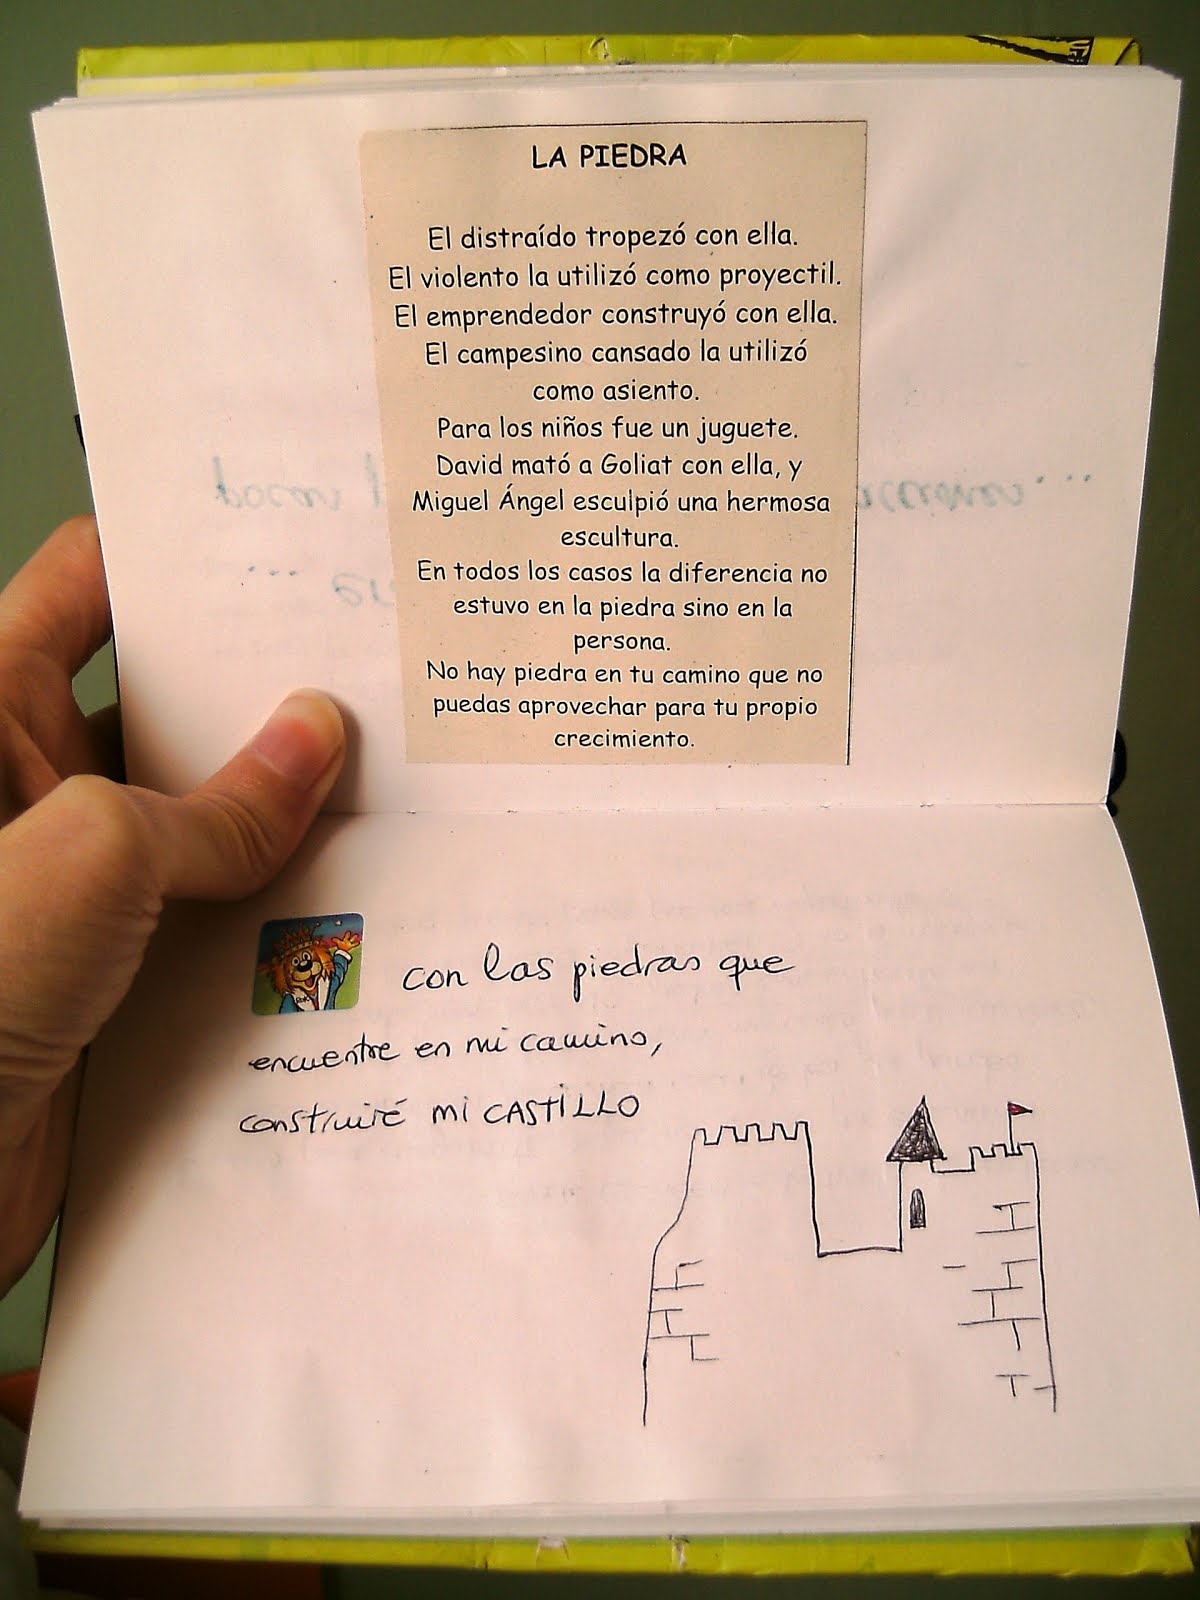 LA PIEDRA
El distraído tropezó con ella.
El violento la utilizó como proyectil.
El emprendedor construyó con ella.
El campesino cansado la utilizó
como asiento.
Para los niños fue un juguete.
David mató a Goliat con ella, y
Miguel Ángel esculpió una hermosa
escultura.
En todos los casos la diferencia no
estuvo en la piedra sino en la
persona.
No hay piedra en tu camino que no
puedas aprovechar para tu propio
crecimiento.
con las piedras que
encuentre en mi camino,
construiré mi CASTILLO